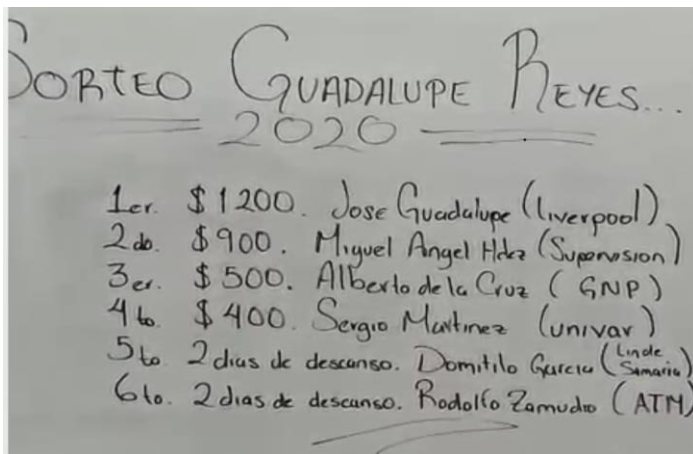 SORTEO GUADALUPE REYES...
2020
1er. $1200. Jose Guadalupe (Liverpool)
2do. $900. Miguel Angel Hdez (Supervosion)
3er. $500. Alberto de la Cruz (GNP)
4to. $400. Sergio Martinez (univar)
5to. 2 dias de descanso. Domitilo Garcia (Linde Samaria)
6to. 2 dias de descanso. Rodolfo Zamudio (ATM)